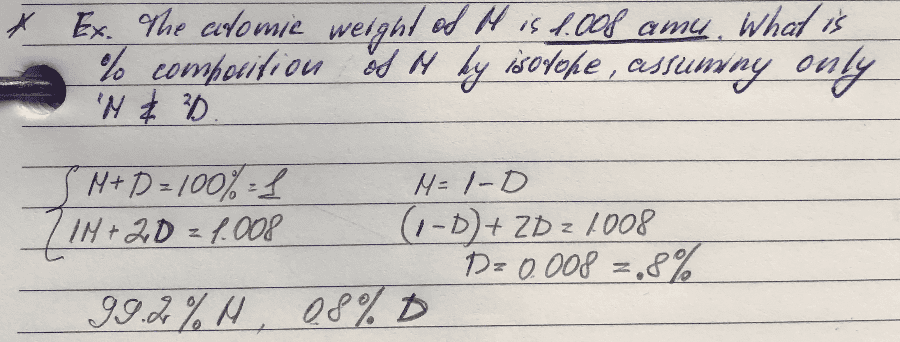 * Ex. The atomic weight of H is 1.008 amu. What is
% composition of H by isotope, assuming only
¹H & ²D.
H+D=100%=1
H=1-D
1H+2D=1.008
(1-D)+2D=1.008
D=0.008=.8%
99.2% H, 0.8% D